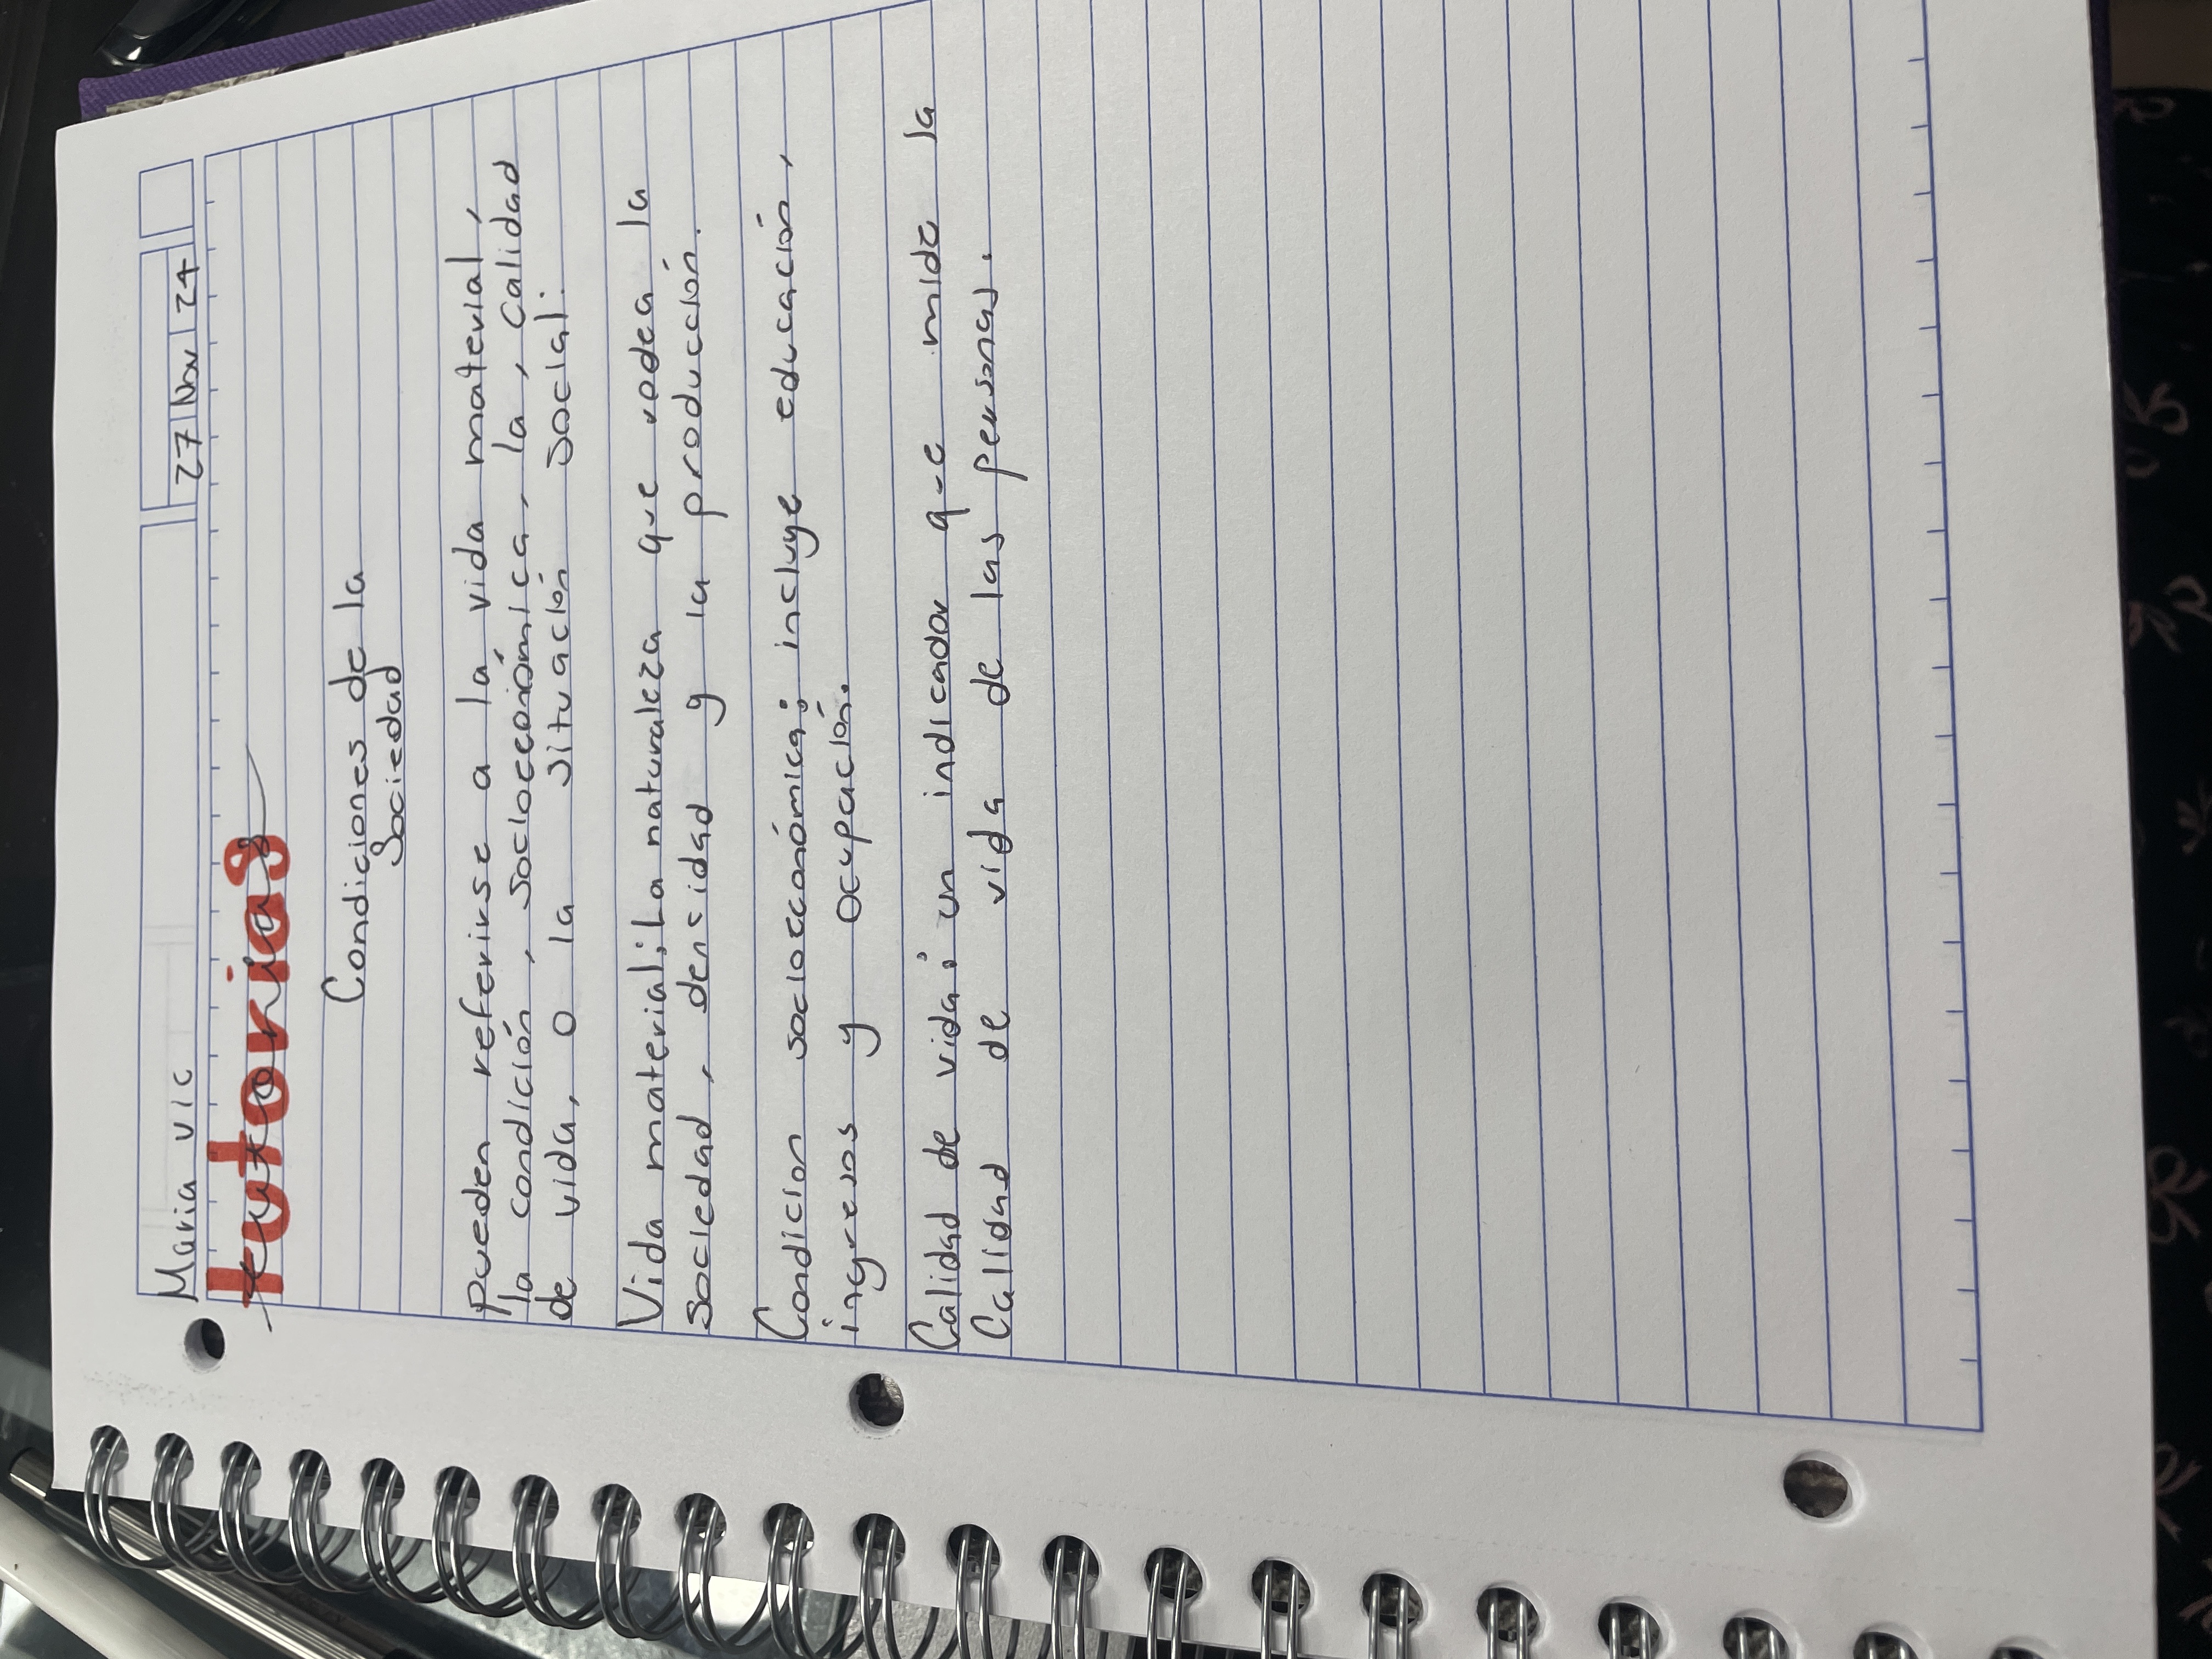 Maria Vic
27 Nov 24
tutorias
Condiciones de la
Sociedad
pueden referirse a la vida material,
la condición, socioeconómica, la, calidad
de vida, o la situación social.
Vida material; La naturaleza que rodea la
sociedad, densidad y la producción.
Condicion socioeconómica; incluye educación,
ingresos y ocupación.
Calidad de vida; un indicador que mide la
Calidad de vida de las personas.